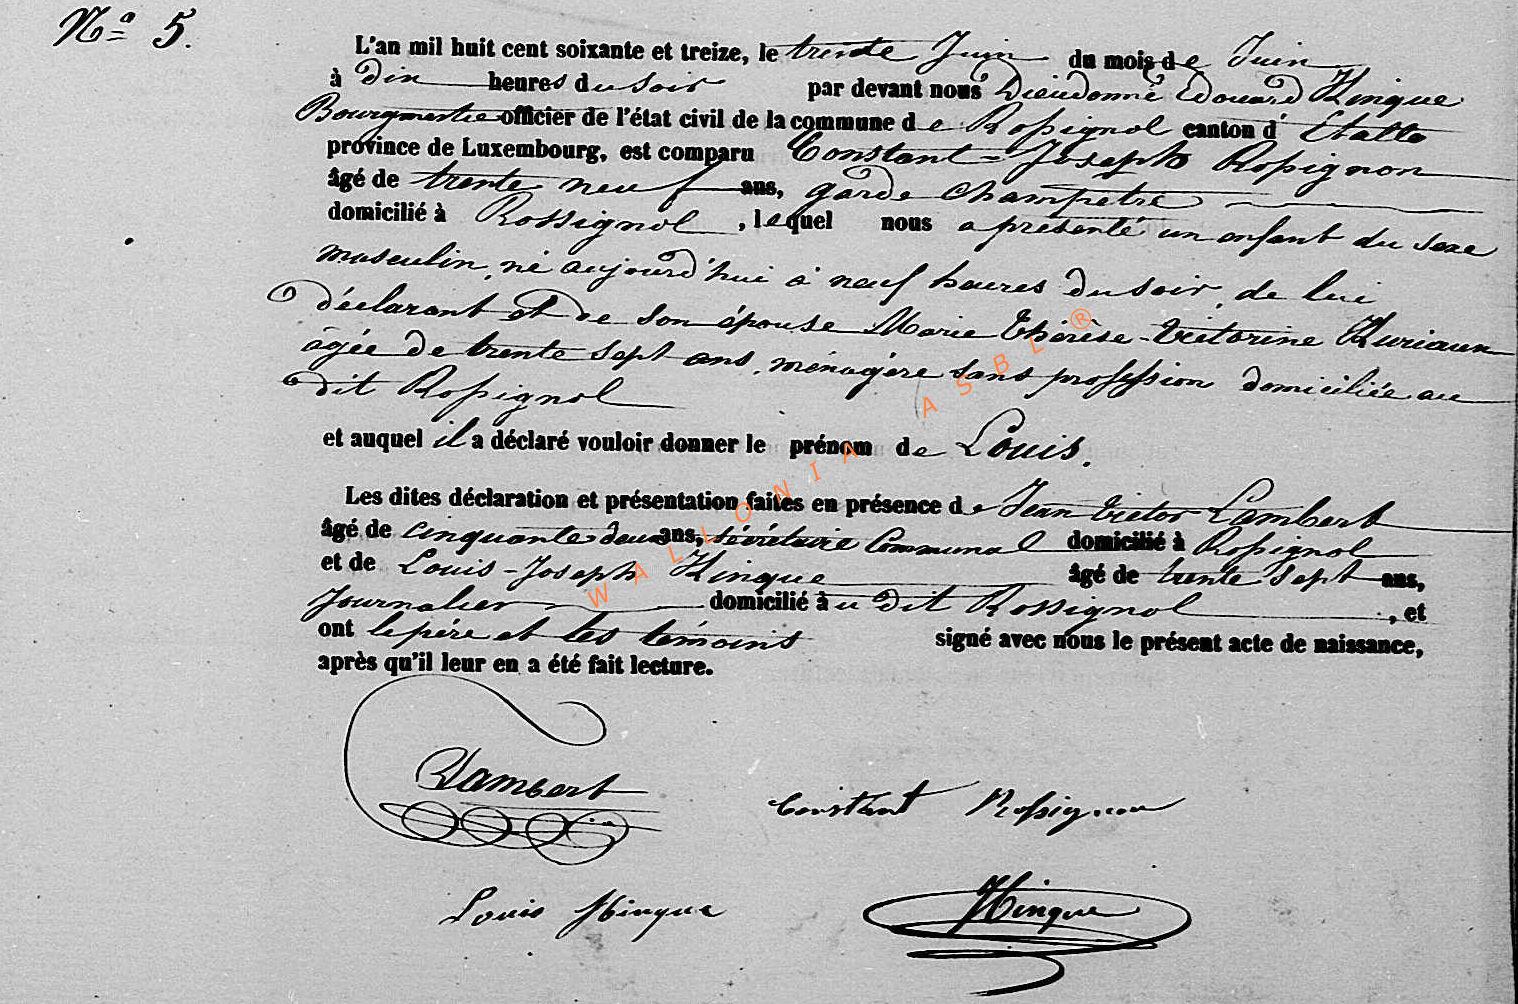 N° 5.
L'an mil huit cent soixante et treize, le trente Juin du mois de Juin
à dix heures du soir par devant nous Dieudonné Edouard Hinque
Bourgmestre officier de l'état civil de la commune de Rossignol canton d'Etalle
province de Luxembourg, est comparu Constant-Joseph Rossignon
âgé de trente neuf ans, garde champetre
domicilié à Rossignol, lequel nous a présenté un enfant du sexe
masculin, né aujourd'hui à neuf heures du soir, de lui
déclarant et de son épouse Marie Thérèse-Victorine
âgée de trente sept ans, ménagère sans profession domiciliée au
dit Rossignol
et auquel il a déclaré vouloir donner le prénom de Louis.
Les dites déclaration et présentation faites en présence de Jean Victor Lambert
âgé de cinquante deux ans, sécrétaire Communal domicilié à Rossignol
et de Louis-Joseph Hinque âgé de trente sept ans,
Journalier domicilié au dit Rossignol, et
ont le père et les témoins signé avec nous le présent acte de naissance,
après qu'il leur en a été fait lecture.
WALLONIA ASBL ®
Lambert
Constant Rossignon
Louis Hinque
Hinque